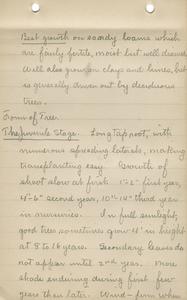 Best growth on sandy loams which
are fairly fertile, moist but well drained.
Will also grow on clays and limes, but
is generally driven out by deciduous
trees.
Form of Tree.
The juvenile stage. Long tap root, with
numerous spreading laterals, making
transplanting easy. Growth of
shoot slow at first. 1"-2" first year,
4"-6" second year, 10"-14" third year
in nurseries. In full sunlight,
good trees sometimes grow 4' in height
at 8 to 16 years. Secondary leaves do
not appear until 2nd year. More
shade enduring during first few
years than later. Wind-firm when